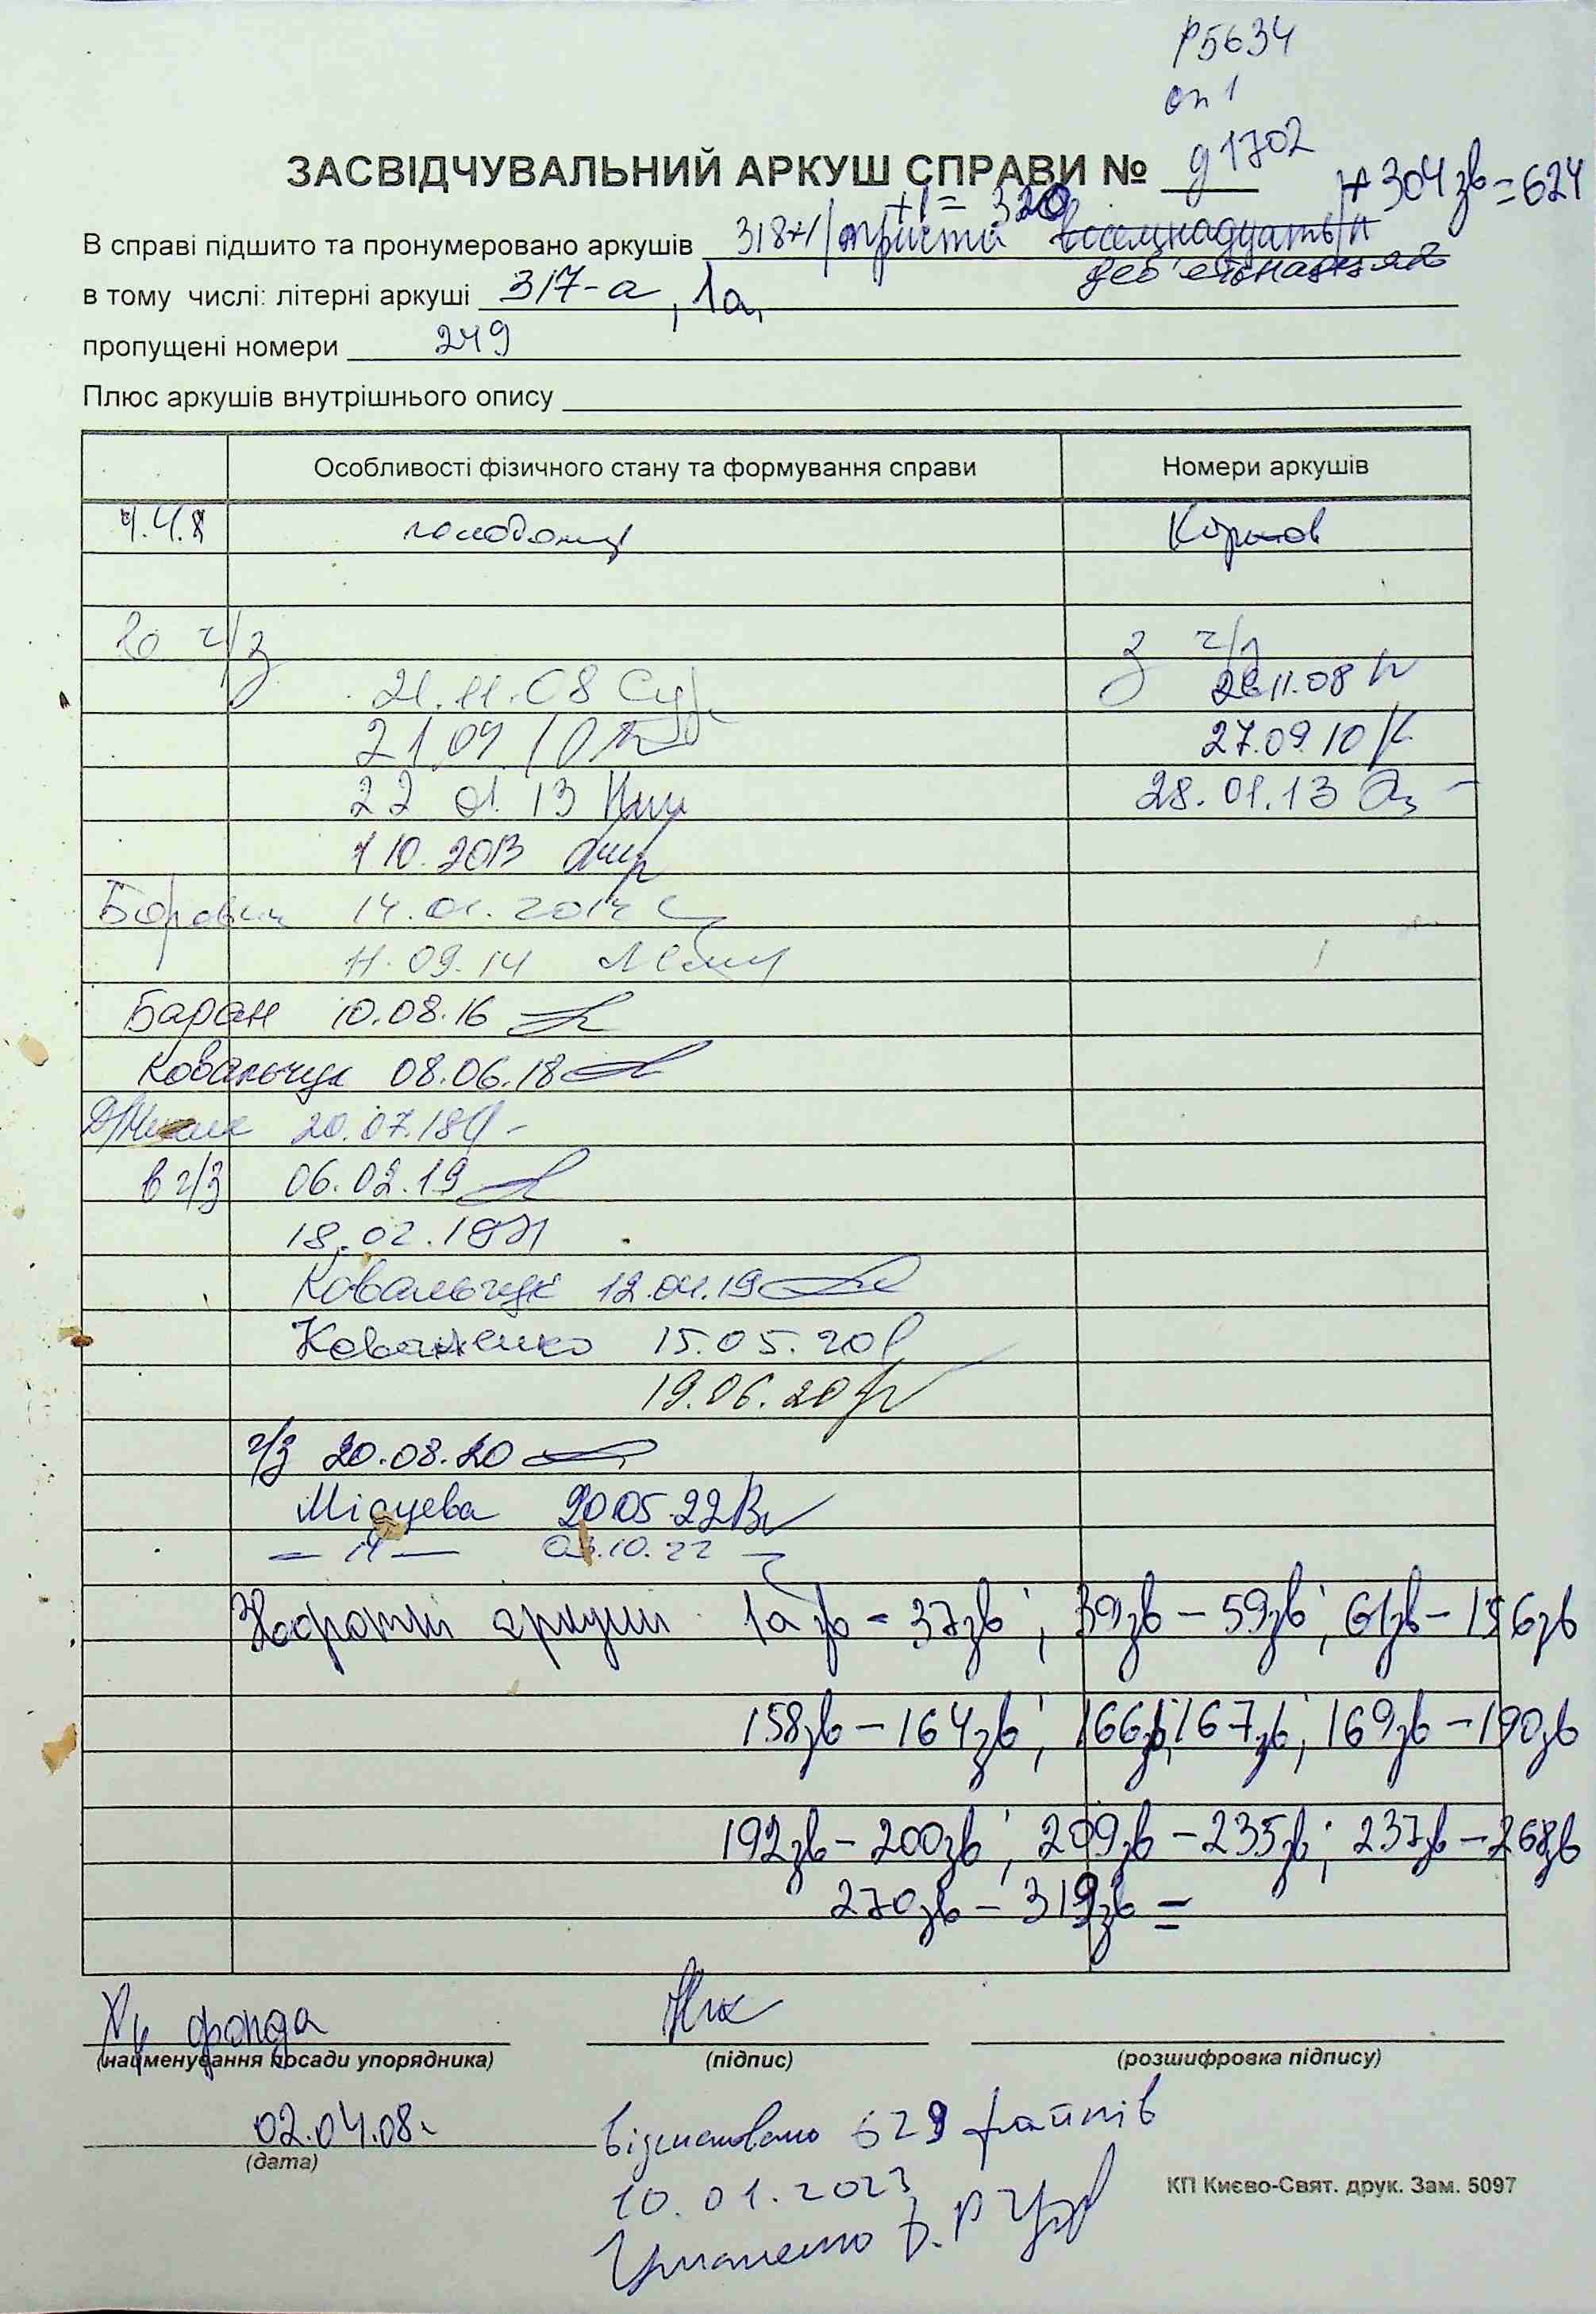 Р5634
оп 1
ЗАСВІДЧУВАЛЬНИЙ АРКУШ СПРАВИ № д 1702
+ 304 зв = 624
+1 = 320
В справі підшито та пронумеровано аркушів 318+1/триста вісемнадцать/
дев'ятнадцять
в тому числі: літерні аркуші 317-а, 1а,
пропущені номери 249
Плюс аркушів внутрішнього опису
Особливості фізичного стану та формування справи Номери аркушів
ч/з з ч/з
21.11.08 26.11.08
21.09.10 27.09.10
22 01. 13 28.01.13
1 10. 2013
14.01.2014
11.09.14
Баран 10.08.16
Ковальчук 08.06.18
20.07.18
в ч/з 06.02.19
18.02.19
Ковальчук 12.04.19
15.05.20
19.06.20
ч/з 20.08.20
Місцева 20.05.22
— 11 — 03.10.22
Звороти аркуши 1а зв - 37зв; 39зв – 59зв; 61зв – 156зв
158зв – 164зв; 166зв; 167зв; 169зв – 190зв
192зв – 200зв; 209зв – 235зв; 237зв – 268зв
270зв – 319зв =
фонда
(найменування посади упорядника) (підпис) (розшифровка підпису)
02.04.08
(дата)
Відскановано 629 файлів
10.01.2023
КП Києво-Свят. друк. Зам. 5097